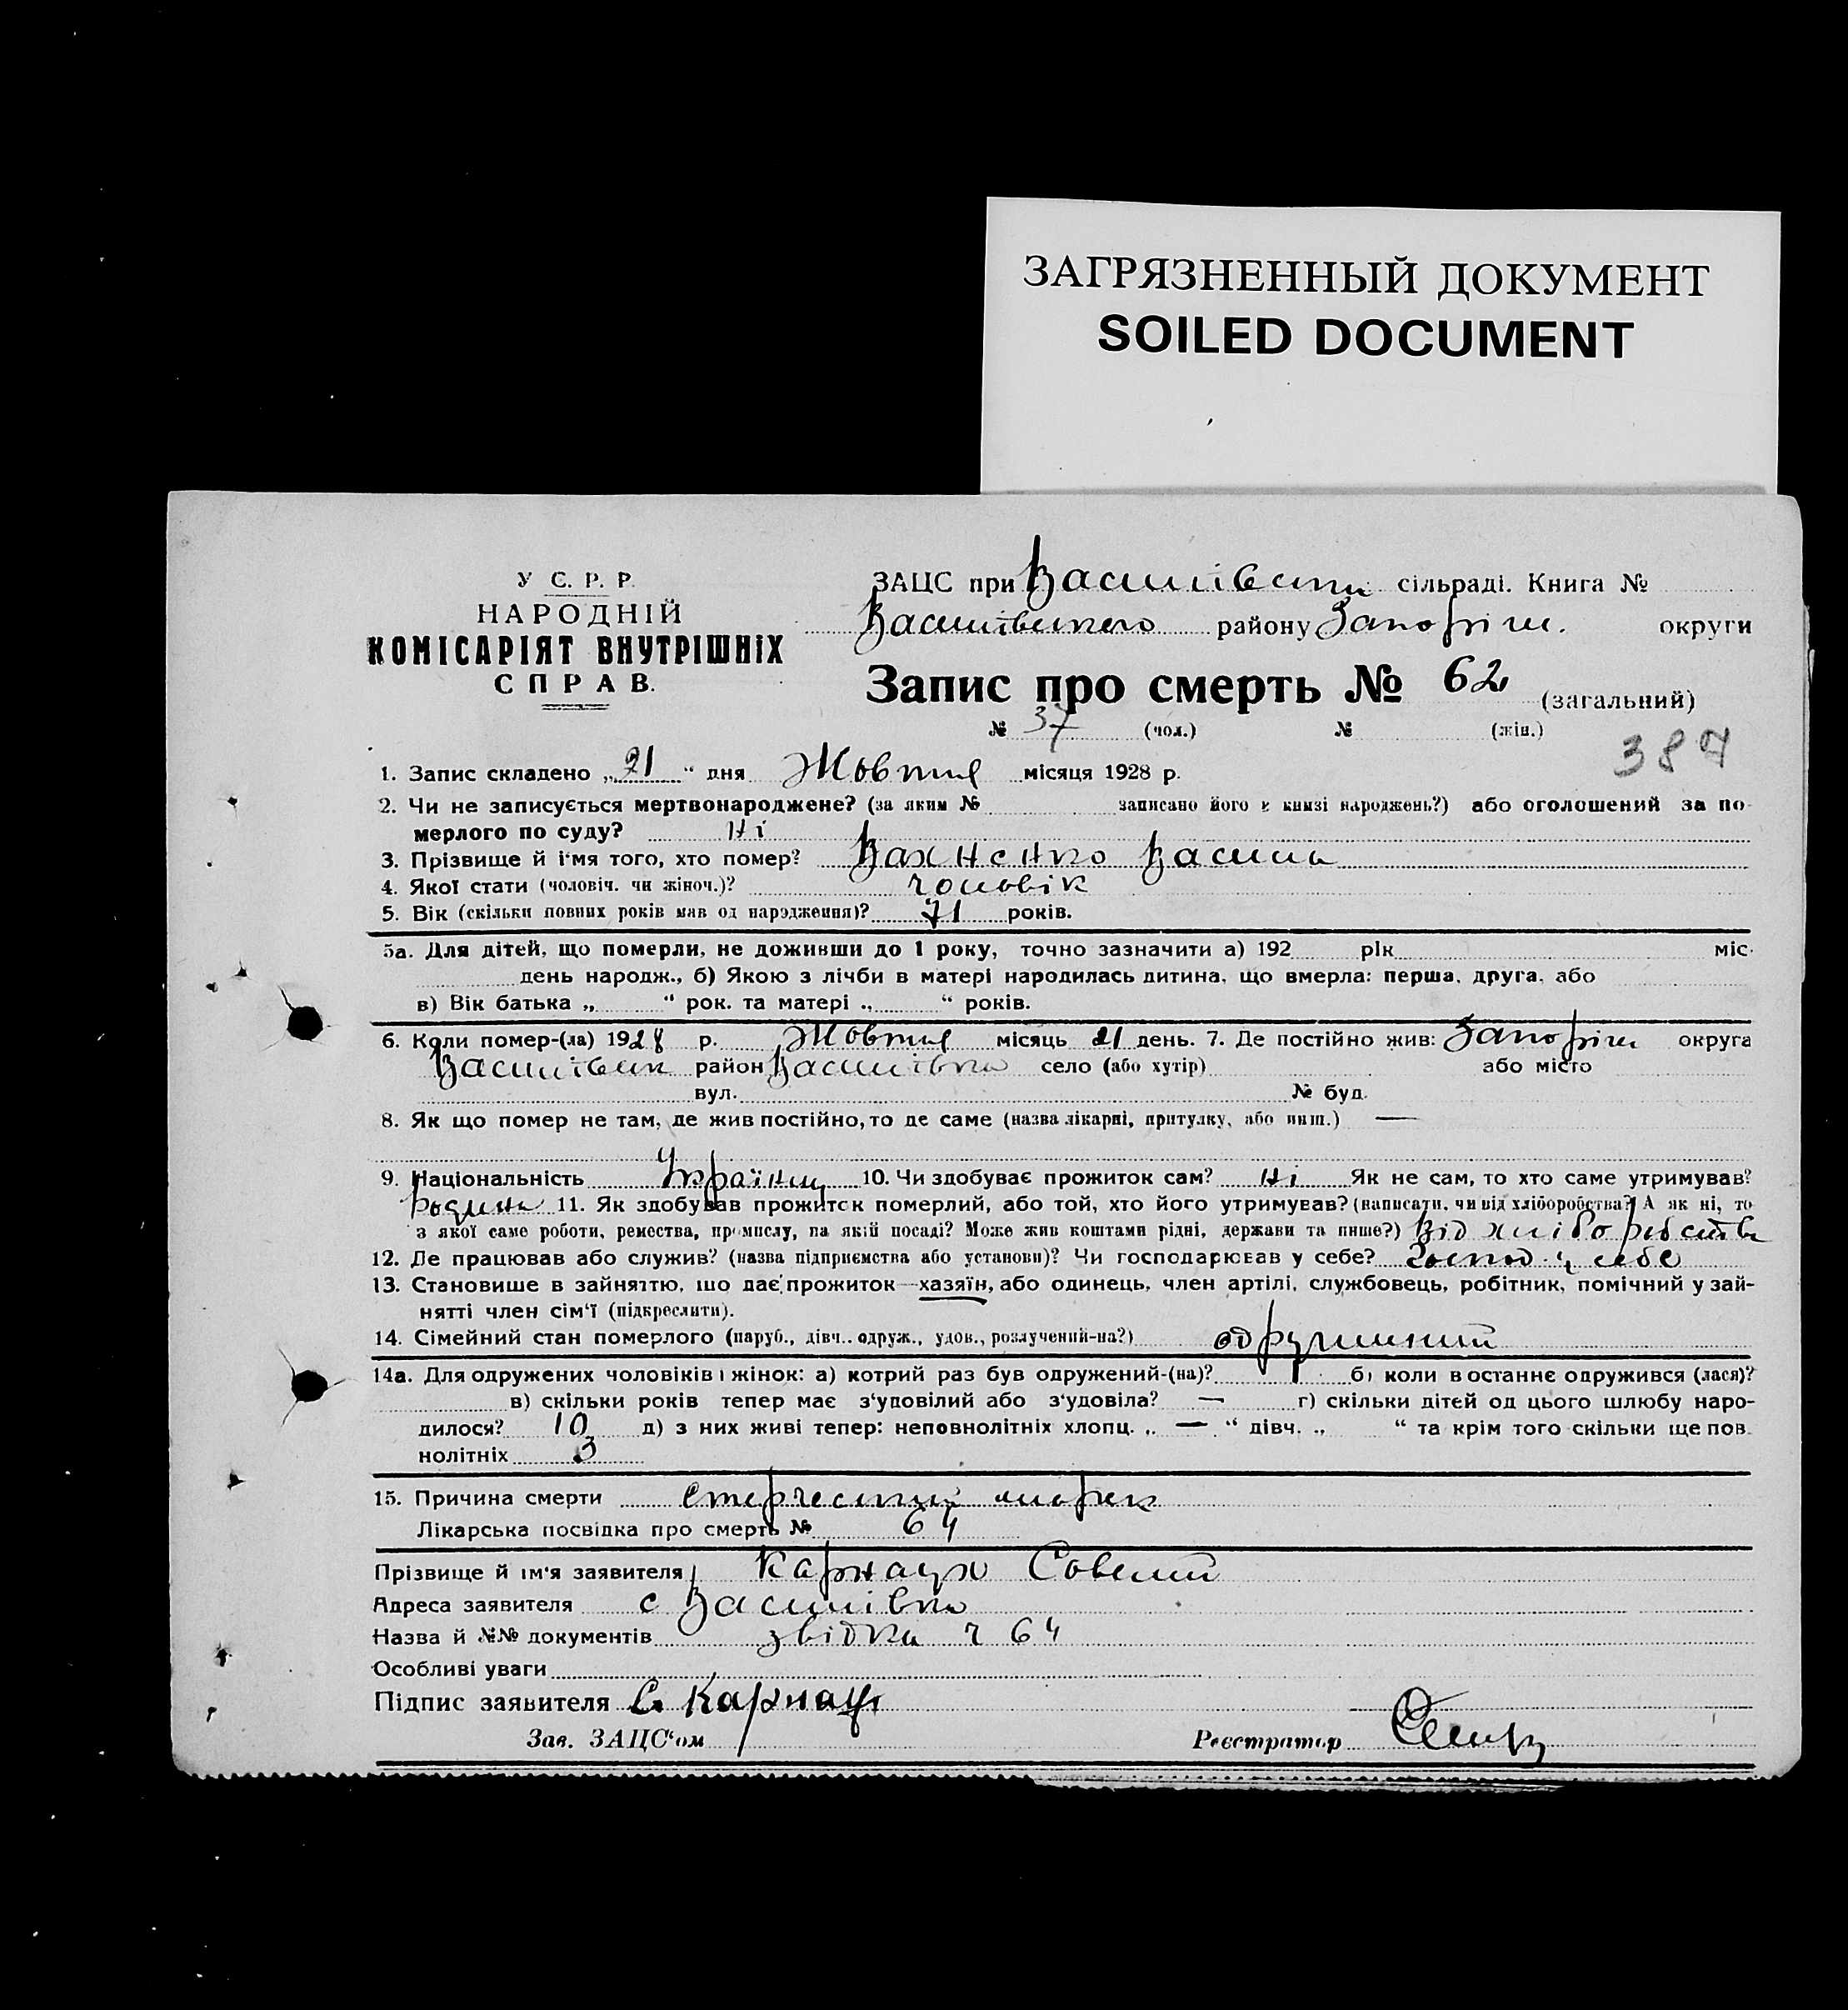 ЗАГРЯЗНЕННЫЙ ДОКУМЕНТ
SOILED DOCUMENT
У С. Р. Р.
НАРОДНІЙ
КОМІСАРІЯТ ВНУТРІШНІХ
СПРАВ.
ЗАЦС при Василівськ. сільраді. Книга №
Василівського району Запоріж. округи
Запис про смерть № 62 (загальний)
№ 37 (чол.) № (жін.)
387
1. Запис складено „21“ дня Жовтня місяця 1928 р.
2. Чи не записується мертвонароджене? (за яким № записано його в книзі народжень?) або оголошений за по-
мерлого по суду? Ні
3. Прізвище й ім'я того, хто помер? Вахненко Василь
4. Якої стати (чоловіч. чи жіноч.)? чоловік
5. Вік (скільки повних років мав од народження)? 71 років.
5а. Для дітей, що померли, не доживши до 1 року, точно зазначити а) 192 рік міс.
день народж., б) Якою з лічби в матері народилась дитина, що вмерла: перша, друга, або
в) Вік батька „ “ рок. та матері „ “ років.
6. Коли помер-(ла) 1928 р. Жовтня місяць 21 день. 7. Де постійно жив: Запоріж округа
Василівськ район Василівка село (або хутір) або місто
вул. № буд.
8. Як що помер не там, де жив постійно, то де саме (назва лікарні, притулку, або инш.) —
9. Національність Українец 10. Чи здобуває прожиток сам? Ні Як не сам, то хто саме утримував?
Родина 11. Як здобував прожиток померлий, або той, хто його утримував? (написати, чи від хліборобства? А як ні, то
з якої саме роботи, ремества, промислу, на якій посаді? Може жив коштами рідні, держави та инше?) Від хліборобства
12. Де працював або служив? (назва підприємства або установи)? Чи господарював у себе? Господ. у себе
13. Становище в зайняттю, що дає прожиток—хазяїн, або одинець, член артілі, службовець, робітник, помічний у зай-
нятті член сім'ї (підкреслити).
14. Сімейний стан померлого (паруб., дівч., одруж., удов., розлучений-на?) одружений
14а. Для одружених чоловіків і жінок: а) котрий раз був одружений-(на)? 1 б) коли в останнє одружився (лася)?
в) скільки років тепер має з'удовілий або з'удовіла? — г) скільки дітей од цього шлюбу наро-
дилося? 10 д) з них живі тепер: неповнолітніх хлопц. „ — “ дівч. „ “ та крім того скільки ще пов-
нолітніх 3
15. Причина смерти
Лікарська посвідка про смерть № 64
Прізвище й ім'я заявителя Карнаух Совелий
Адреса заявителя с Василівка
Назва й №№ документів звідка ч 64
Особливі уваги
Підпис заявителя С. Карнаух
Зав. ЗАЦС'ом Реєстратор